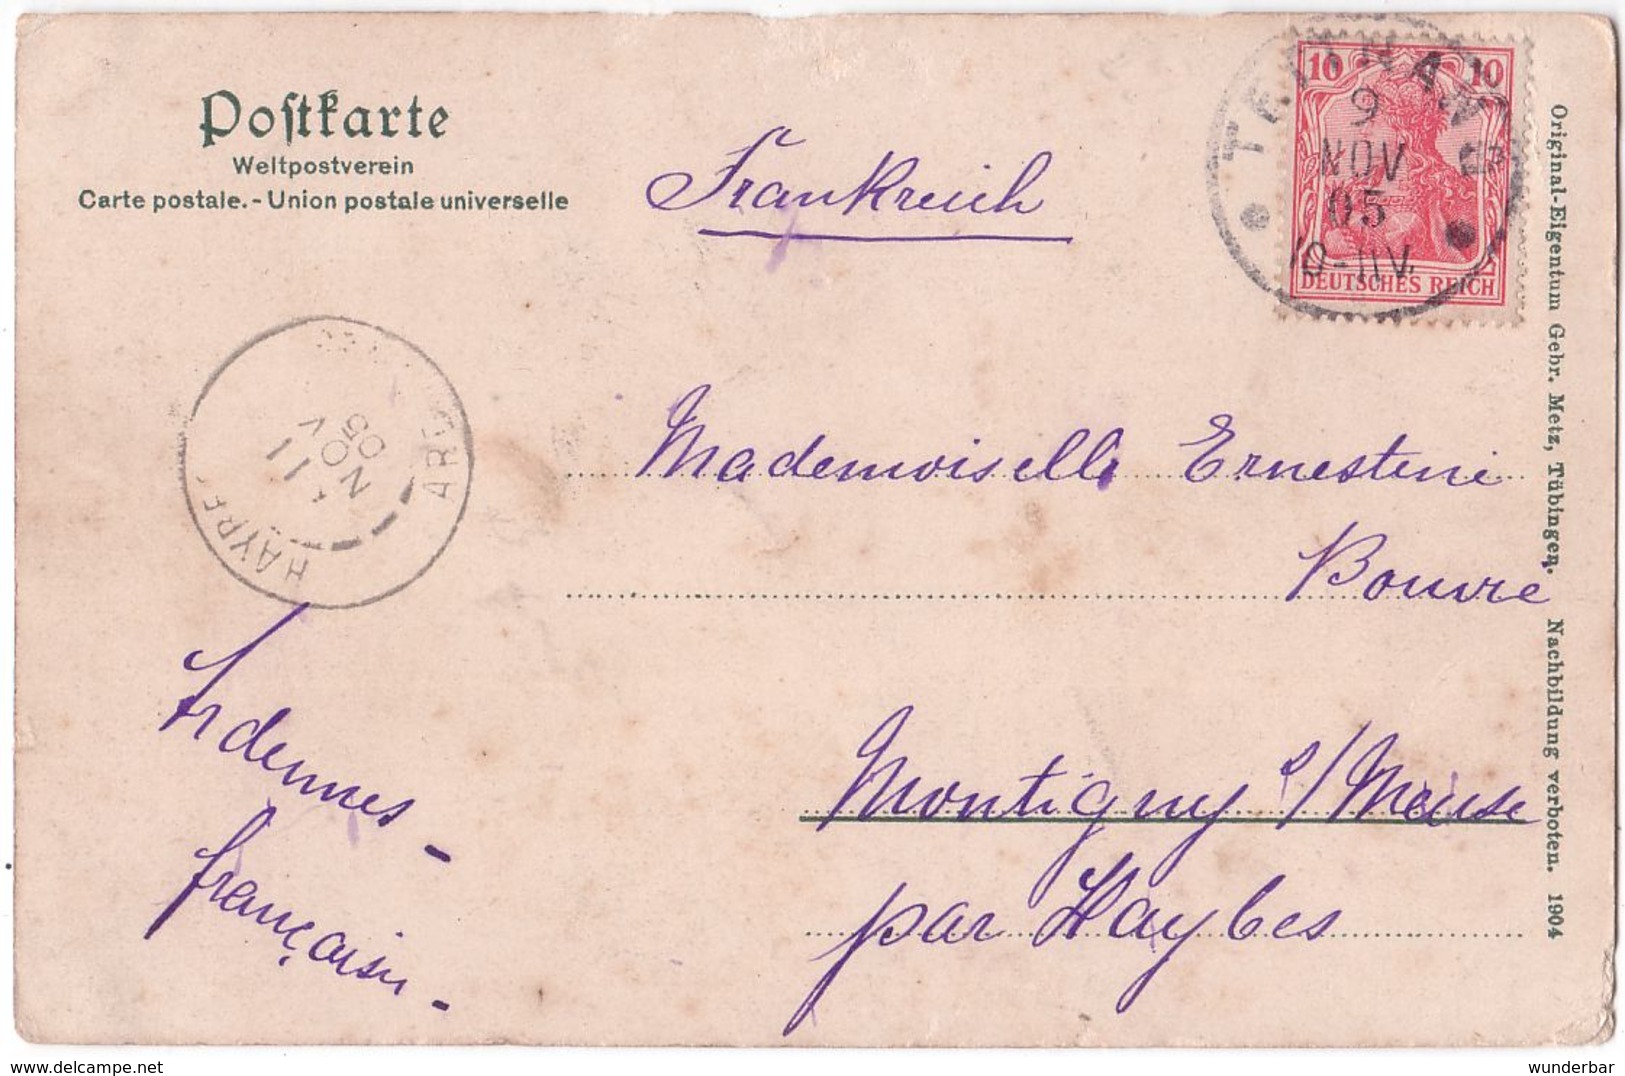 Postkarte
Weltpostverein
Carte postale. - Union postale universelle
Frankreich
10 10
DEUTSCHES REICH
9
NOV
05
10-11V.
11
NOV
05
Mademoiselle Ernestine
Bouvre
Montigny s/Meuse
par Haybes
Ardennes -
française -
Original-Eigentum Gebr. Metz, Tübingen. Nachbildung verboten. 1904
wunderbar